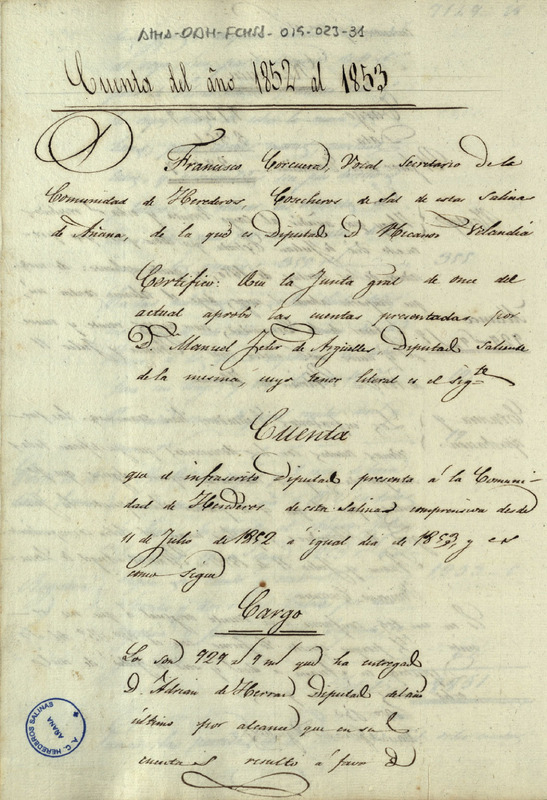 AHA-ODH-FCHSA-019-023-38
Cuenta del año 1852 al 1853
D
Francisco Corcuera, Vocal Secretario de la
Comunidad de Herederos, Cosecheros de Sal de estas Salinas
de Añana, de la que es Diputado D. Nicanor Velandia
Certifico: Que la Junta gral de once del
actual aprobó las cuentas presentadas por
D. Manuel Felix de Argüelles Diputado Saliente
de la misma, cuyo tenor literal es el sigte
Cuenta
que el infrascrito Diputado presenta á la Comuni-
dad de Herederos de estas Salinas comprensiva desde
11 de Julio de 1852 a igual dia de 1853, y es
como sigue
Cargo
Lo son 727 9 mrs que ha entregado
D. Adrian de Herran Diputado del año
último por alcance que en su
cuenta resultó á favor
A. C. HEREDEROS SALINAS
AÑANA